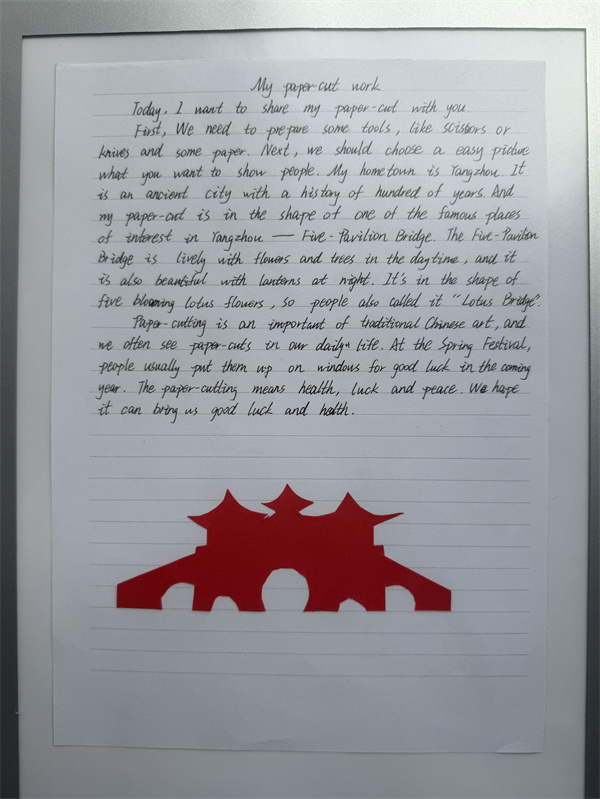 My paper-cut work
Today, I want to share my paper-cut with you
First, We need to prepare some tools, like scissors or
knives and some paper. Next, we should choose a easy picture
what you want to show people. My hometown is Yangzhou. It
is an ancient city with a history of hundred of years. And
my paper-cut is in the shape of one of the famous places
of interest in Yangzhou — Five-Pavilion Bridge. The Five-Pavilion
Bridge is lively with flowers and trees in the daytime, and it
is also beautiful with lanterns at night. It's in the shape of
five blooming lotus flowers, so people also called it "Lotus Bridge".
Paper-cutting is an important of traditional Chinese art, and
we often see paper-cuts in our daily life. At the Spring Festival,
people usually put them up on windows for good luck in the coming
year. The paper-cutting means health, luck and peace. We hope
it can bring us good luck and health.